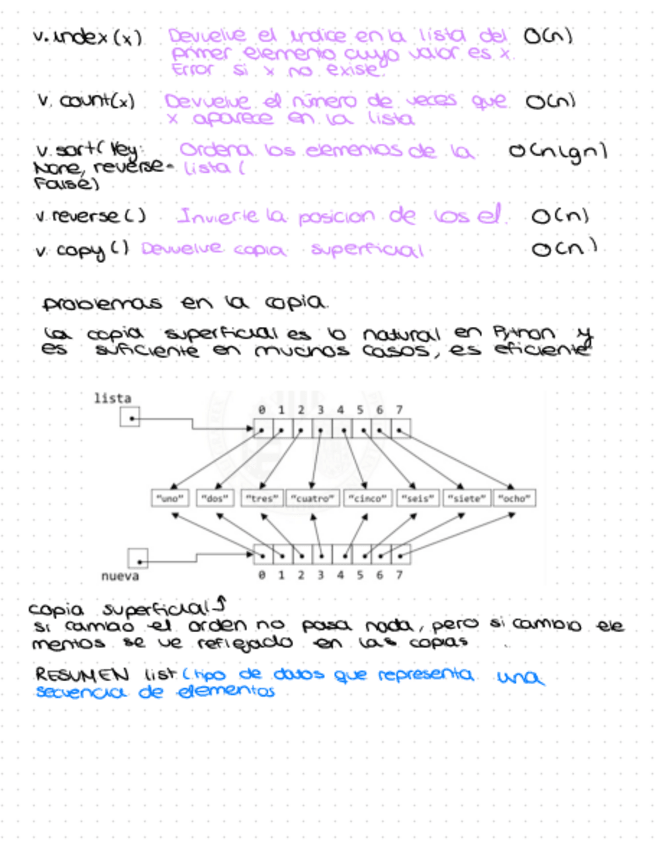 v.index(x) Devuelve el indice en la lista del O(n)
primer elemento cuyo valor es x.
Error si x no existe.
v. count(x) Devuelve el número de veces que O(n)
x aparece en la lista
v.sort( Key: Ordena los elementos de la O(nlgn)
None, reverse= lista (
False)
v.reverse() Invierte la posicion de los el. O(n)
v. copy () Devuelve copia superficial O(n)
problemas en la copia.
La copia superficial es lo natural en Python y
es suficiente en muchos casos, es eficiente
lista
0 1 2 3 4 5 6 7
"uno" "dos" "tres" "cuatro" "cinco" "seis" "siete" "ocho"
nueva
0 1 2 3 4 5 6 7
copia superficial ↑
si cambio el orden no pasa nada, pero si cambio ele
mentos se ve reflejado en las copias
RESUMEN list (tipo de datos que representa una
secuencia de elementos